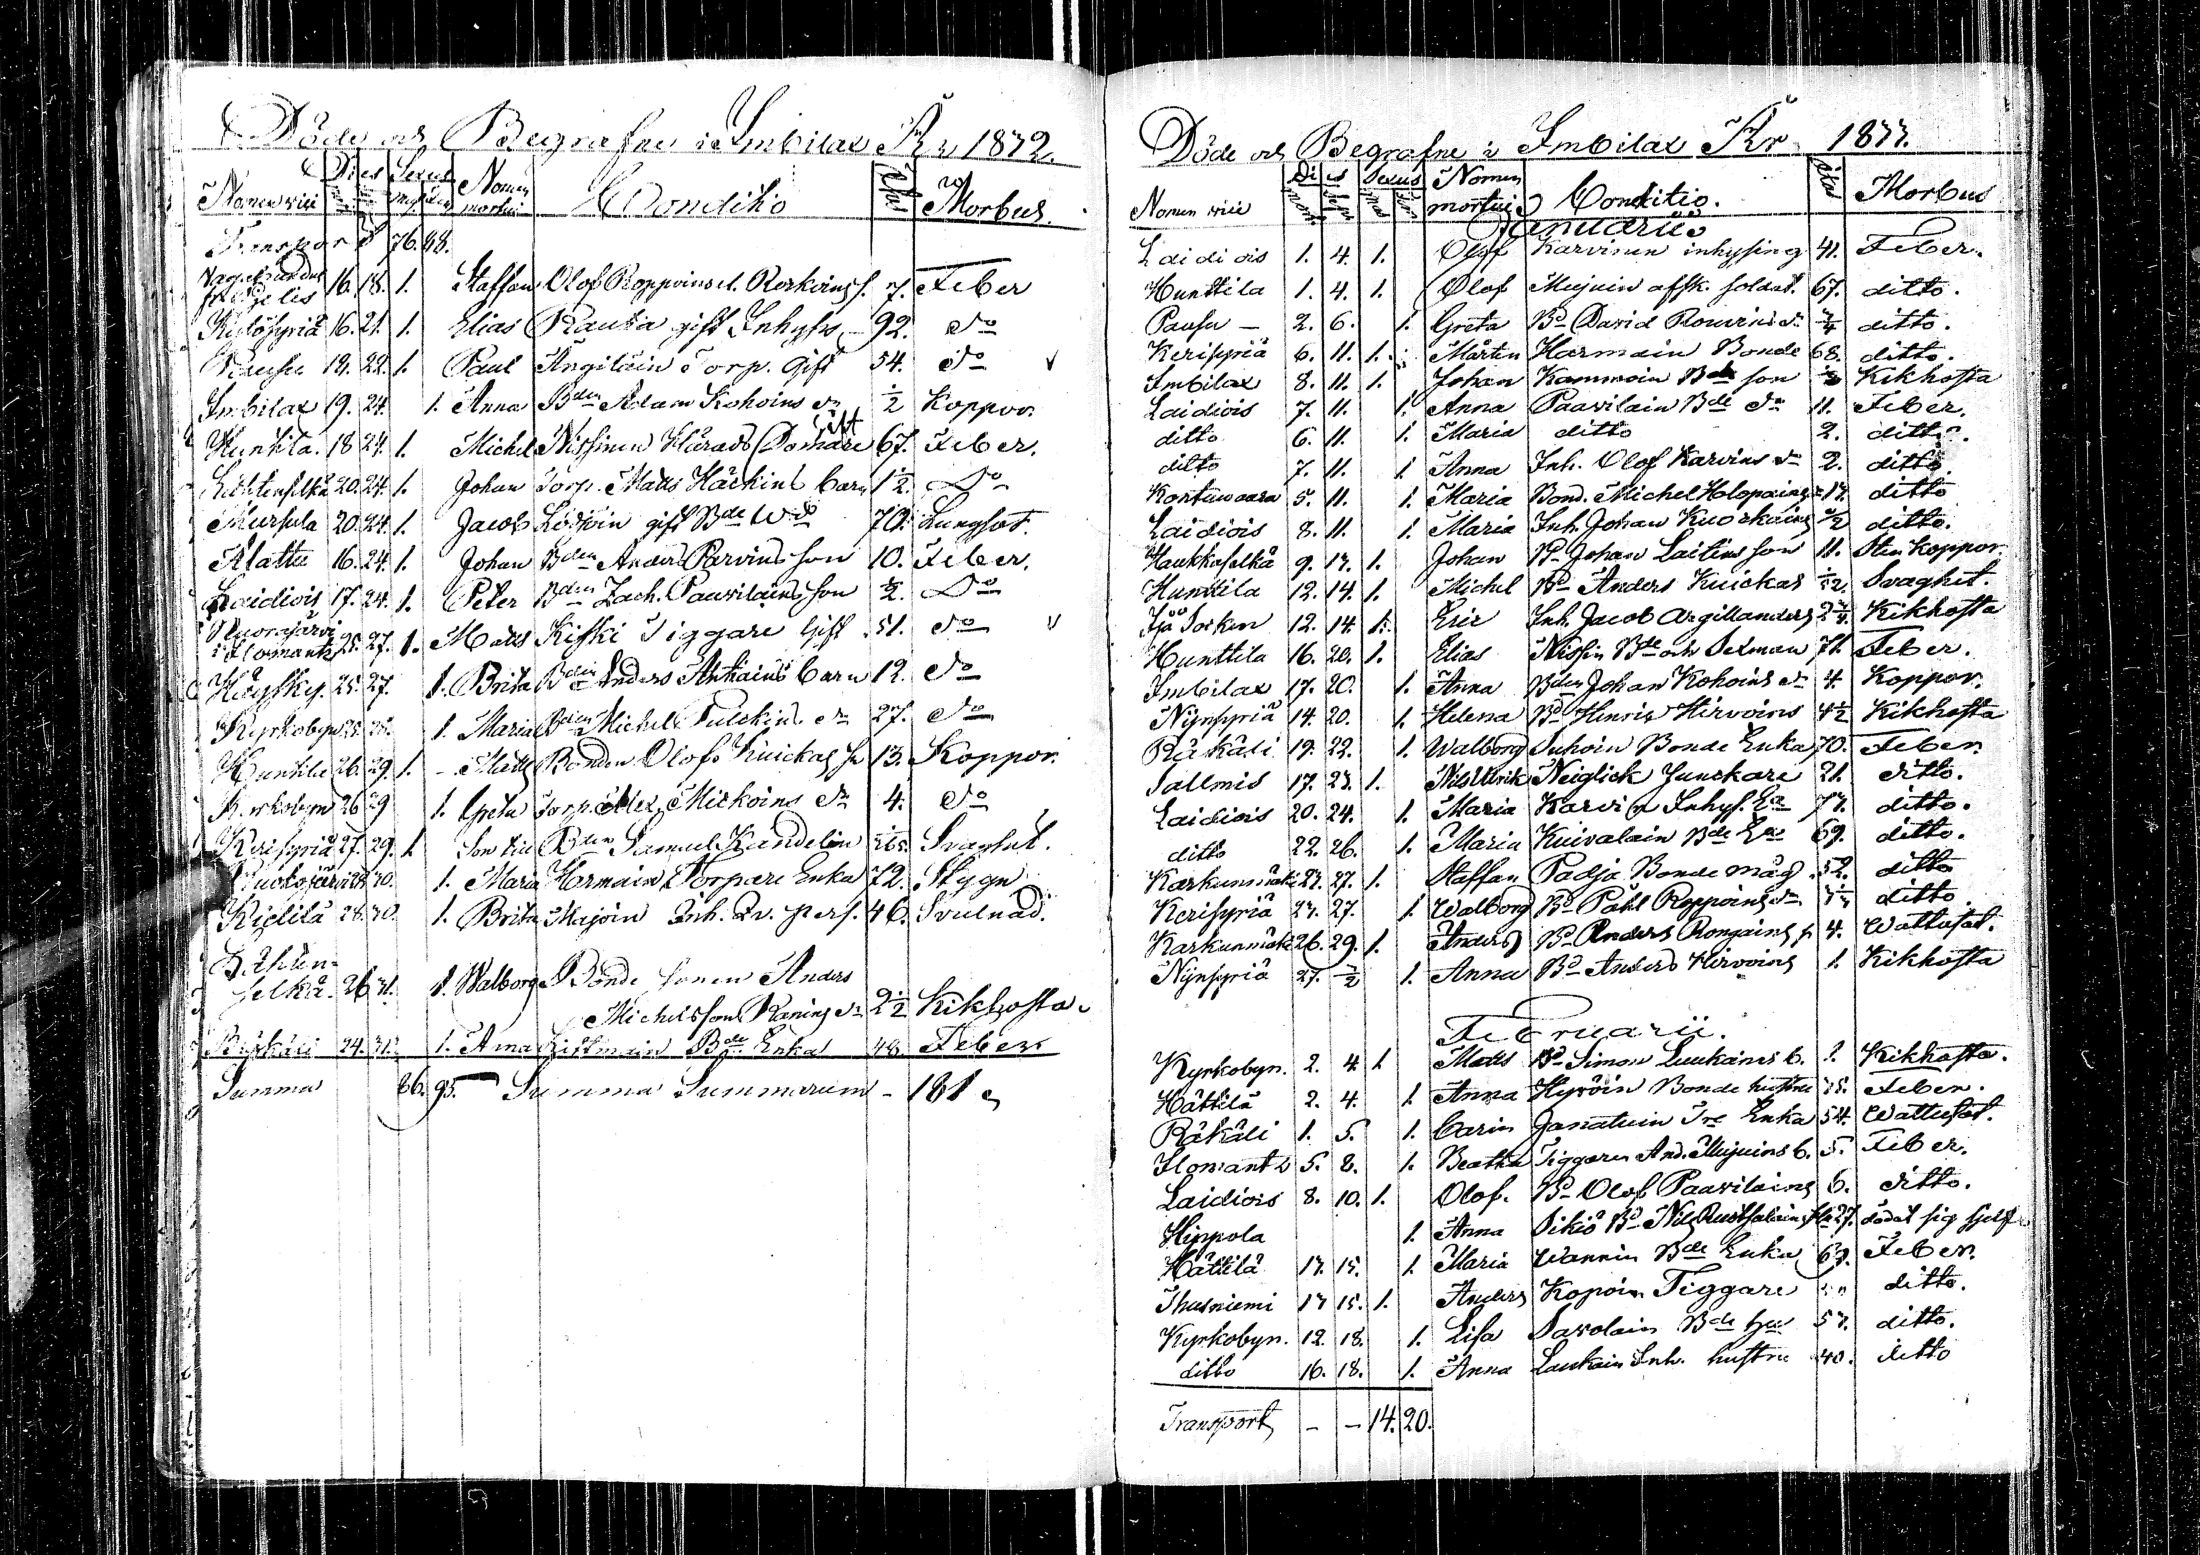 Döde och Begrafne i Imbilax År 1872.
Nomen vici Dies Sexus Nomen mortui Conditio Ætas Morbus.
Transport 76. 88.
16. 18. 1. Staffan Olof Roppoins 7. Feber
Kulösyriä 16. 21. 1. Elias Rautia gift Inhyses 92. do
19. 22. 1. Paul Ängiläin Torp. Gift 54. do
Imbilax 19. 24. 1. Anna Bden Adam Kohoins dr ½ Koppor
Huntila 18 24. 1. Michel Nissinen Härads Domare Gift 67. Feber.
20. 24. 1. Johan Torp. Matts Häckins barn 1½. Do
Mursula 20. 24. 1. Jacob gift Bde 70. Lungsot.
Alattu 16. 24. 1. Johan Bden Anders Parvins son 10. Feber.
Laidiois 17. 24. 1. Peter Bden Zach. Pauvilains son ½. Do
Vuorajärvi i Ilomants 25. 27. 1. Matts Kiski Tiggare Gift 51. do
25. 27. 1. Brita Bden Anders Antkains barn 12. do
Kyrkobyn 25. 1. Maria Bden Michel Pulckins dr 27. do
Huntila 26. 29. 1. Matts Bonden Olof Kuickas 13. Koppor.
Kyrkobyn 26 29 1. Greta Torp. Mickoins dr 4. do
Kerisyriä 27. 29. 1. Son till Bden Samuel Kandelin Svaghet.
28. 30. 1. Maria Hermain Torpare Enka 72. Stygn
Kiditä 28. 30. 1. Brita Majoin Inh. Qv. pers. 46. Svulnad.
selkä. 26 31. 1. Walborg Bonde sonen Anders
Michelsson Ranins dr 2½ Kikhosta
Räkäli 24. 31. 1. Anna Bde Enka 48. Feber
Summa 86. 95. Summa Summarum - 181
Döde och Begrafne i Imbilax År 1873.
Nomen vici Dies Sexus Nomen mortui Conditio. Ætas Morbus
Januarii
Laidiois 1. 4. 1. Olof Karvinen inhysing 41. Feber.
Hunttila 1. 4. 1. Olof Mujuin afsk. soldat. 67. ditto.
Pausu - 2. 6. 1. Greta Bd David Rouvins dr ¾ ditto.
Kerisyriä 6. 11. 1. Mårten Harmain Bonde 68. ditto.
Imbilax 8. 11. 1. Johan Kammoin Bde son Kikhosta
Laidiois 7. 11. 1. Anna Paavilain Bde dr 11. Feber.
ditto 6. 11. 1. Maria ditto 2. ditto.
ditto 7. 11. 1. Anna Inh. Olof Karvins dr 2. ditto.
Kortewaara 5. 11. 1. Maria Bond. Michel Holopains ditto
Laidiois 8. 11. 1. Maria Inh. Johan Kuorkains ditto.
Haukkaselkä 9. 13. 1. Johan Bd Johan Laitins son 11. Sten koppor.
Huntila 12. 14. 1. Michel Bd Anders Kuickas Svaghet.
12. 14. 1. Eric Inh. Jacob Argillanders Kikhosta
Hunttila 16. 20. 1. Elias Nissin Bde och Sexman 71. Feber.
Imbilax 17. 20. 1. Anna Bden Johan Kohoins dr 4. Koppor.
Nijnsyriä 14. 20. 1. Helena Bd Henric Hirvoins 4½ Kikhosta
Räkäli 19. 22. 1. Walborg Suhoin Bonde Enka 70. Feber.
Sallmis 17. 23. 1. Nils Ulrik Neiglick Junckare 21. ditto.
Laidiois 20. 24. 1. Maria Karvin Inhys. Ea 73. ditto.
ditto 22. 26. 1. Maria Kuivalain Bde Ea 69. ditto.
Karkunmäki 23. 27. 1. Staffan Padja Bonde måg 52. ditto
Kerisyriä 23. 27. 1. Walborg Bd Påhl Roppoins dr ditto.
Karkunmäki 26. 29. 1. Anders Bd Anders Rongains 4. Wattusot.
Nijnsyriä 27. ½ 1. Anna Bd Anders Hirvoins 1. Kikhosta
Februarii.
Kyrkobyn. 2. 4. 1 Matts Bd Simon Luukains b. Kikhosta.
Hättilä 2. 4. 1. Anna Hyvöin Bonde hustru 75. Feber.
Räkäli 1. 5. 1. Carin Janatuin Tre Enka 54. Wattusot.
Ilomants 5. 8. 1. Beatha Tiggaren And. Mujuins b. 5. Feber.
Laidiois 8. 10. 1. Olof. Bd Olof Paavilains 6. ditto.
Hippola 1. Anna Sikiö Bd Nils 27. dödat sig sjelf
Hättilä 13. 15. 1. Maria Wannin Bde Enka 63. Feber.
Ihasniemi 13 15. 1. Anders Kopoin Tiggare ditto.
Kyrkobyn. 12. 18. 1. Lisa Savolain Bde hu 53. ditto.
ditto 16. 18. 1. Anna Laukain Inh. hustru 40. ditto
Transport - - 14. 20.